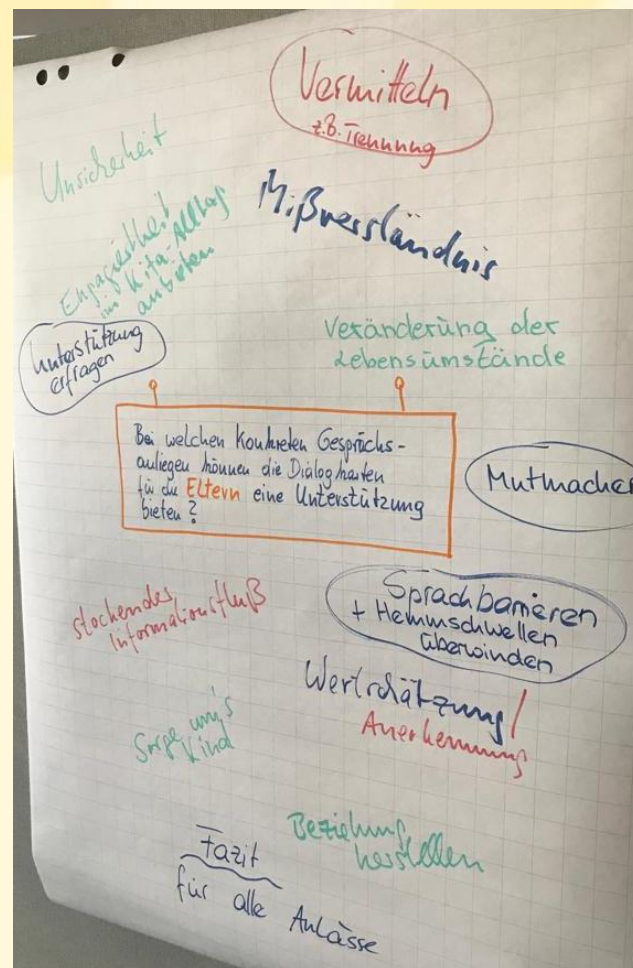 Vermitteln
z.B. Trennung
Unsicherheit
Mißverständnis
Engagiertheit
im Kita-Alltag
anbieten
Veränderung der
Lebensumstände
Unterstützung
erfragen
Bei welchen konkreten Gesprächs-
anliegen können die Dialogkarten
für die Eltern eine Unterstützung
bieten?
Mutmacher
stockendes
Informationsfluß
Sprachbarrieren
+ Hemmschwellen
überwinden
Wertschätzung/
Anerkennung
Sorge um's
Kind
Beziehung
herstellen
Fazit
für alle Anlässe